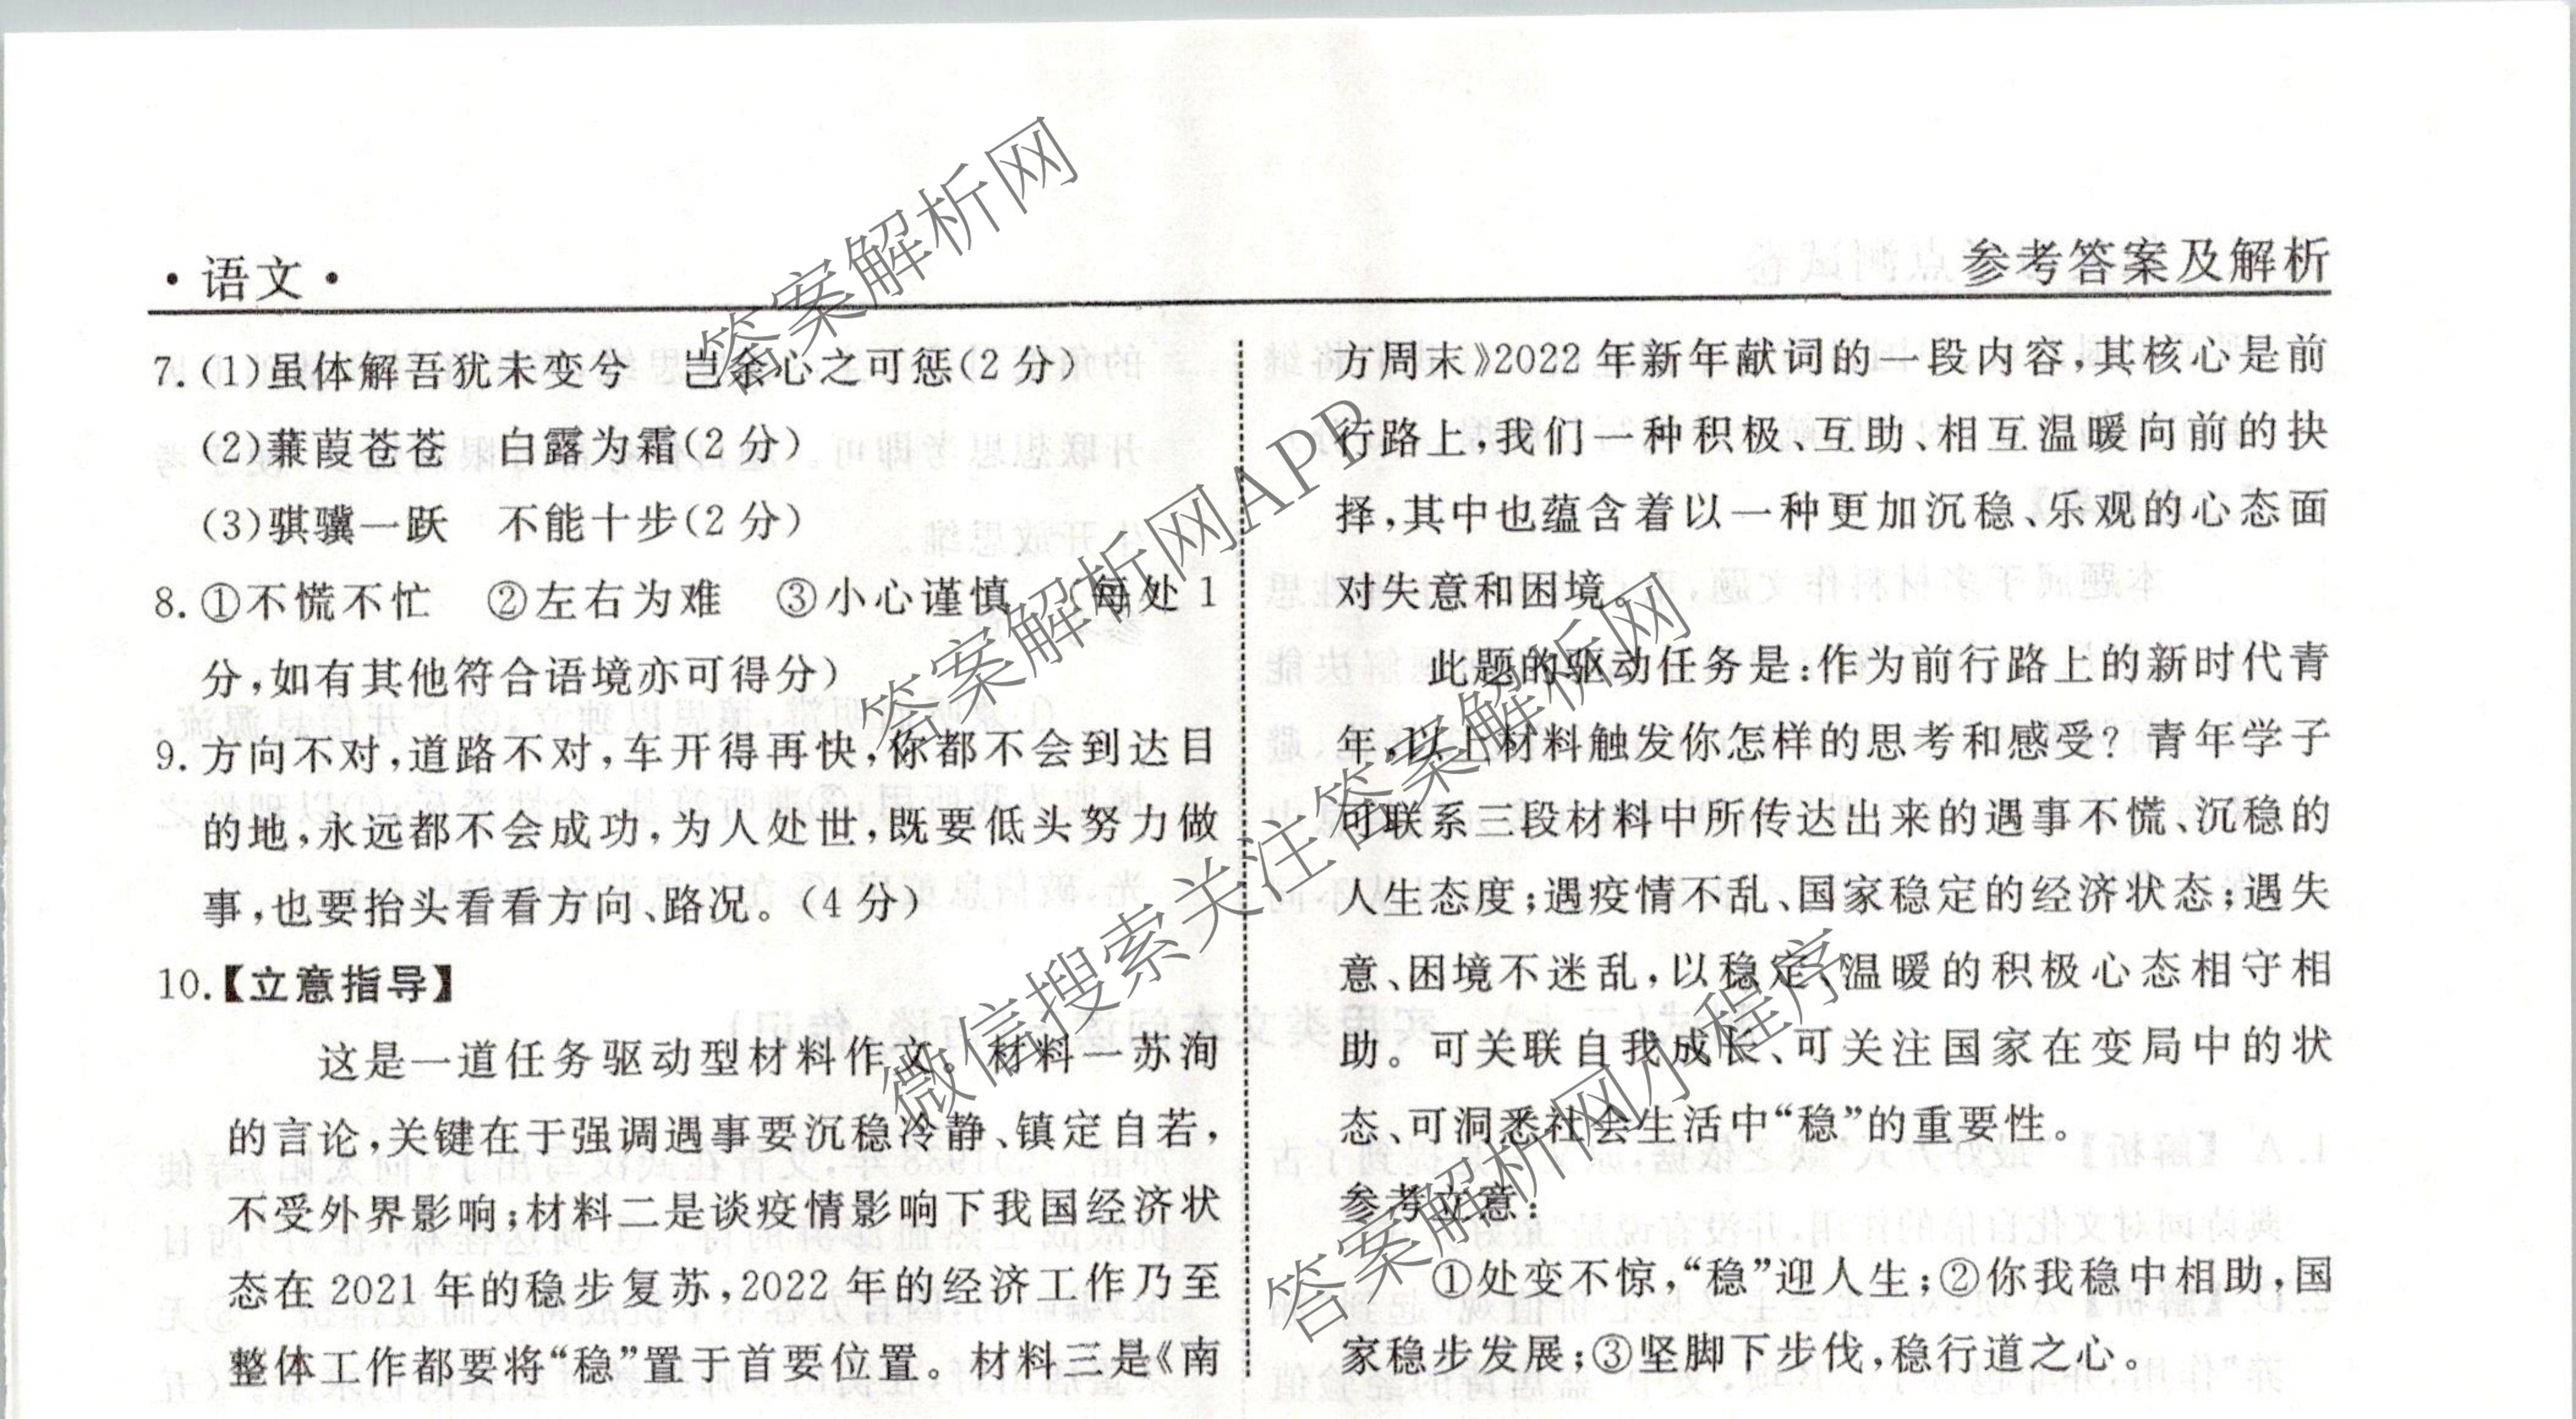 ·语文·
参考答案及解析
7.(1)虽体解吾犹未变兮 岂余心之可惩(2分)
(2)蒹葭苍苍 白露为霜(2分)
(3)骐骥一跃 不能十步(2分)
8.①不慌不忙 ②左右为难 ③小心谨慎 (每处1
分,如有其他符合语境亦可得分)
9.方向不对,道路不对,车开得再快,你都不会到达目
的地,永远都不会成功,为人处世,既要低头努力做
事,也要抬头看看方向、路况。(4分)
10.【立意指导】
这是一道任务驱动型材料作文。材料一苏洵
的言论,关键在于强调遇事要沉稳冷静、镇定自若,
不受外界影响;材料二是谈疫情影响下我国经济状
态在2021年的稳步复苏,2022年的经济工作乃至
整体工作都要将“稳”置于首要位置。材料三是《南
方周末》2022年新年献词的一段内容,其核心是前
行路上,我们一种积极、互助、相互温暖向前的抉
择,其中也蕴含着以一种更加沉稳、乐观的心态面
对失意和困境。
此题的驱动任务是:作为前行路上的新时代青
年,以上材料触发你怎样的思考和感受?青年学子
可联系三段材料中所传达出来的遇事不慌、沉稳的
人生态度;遇疫情不乱、国家稳定的经济状态;遇失
意、困境不迷乱,以稳定、温暖的积极心态相守相
助。可关联自我成长、可关注国家在变局中的状
态、可洞悉社会生活中“稳”的重要性。
参考立意:
①处变不惊,“稳”迎人生;②你我稳中相助,国
家稳步发展;③坚脚下步伐,稳行道之心。
答案解析网
答案解析网APP
微信搜索关注答案解析网
答案解析网小程序